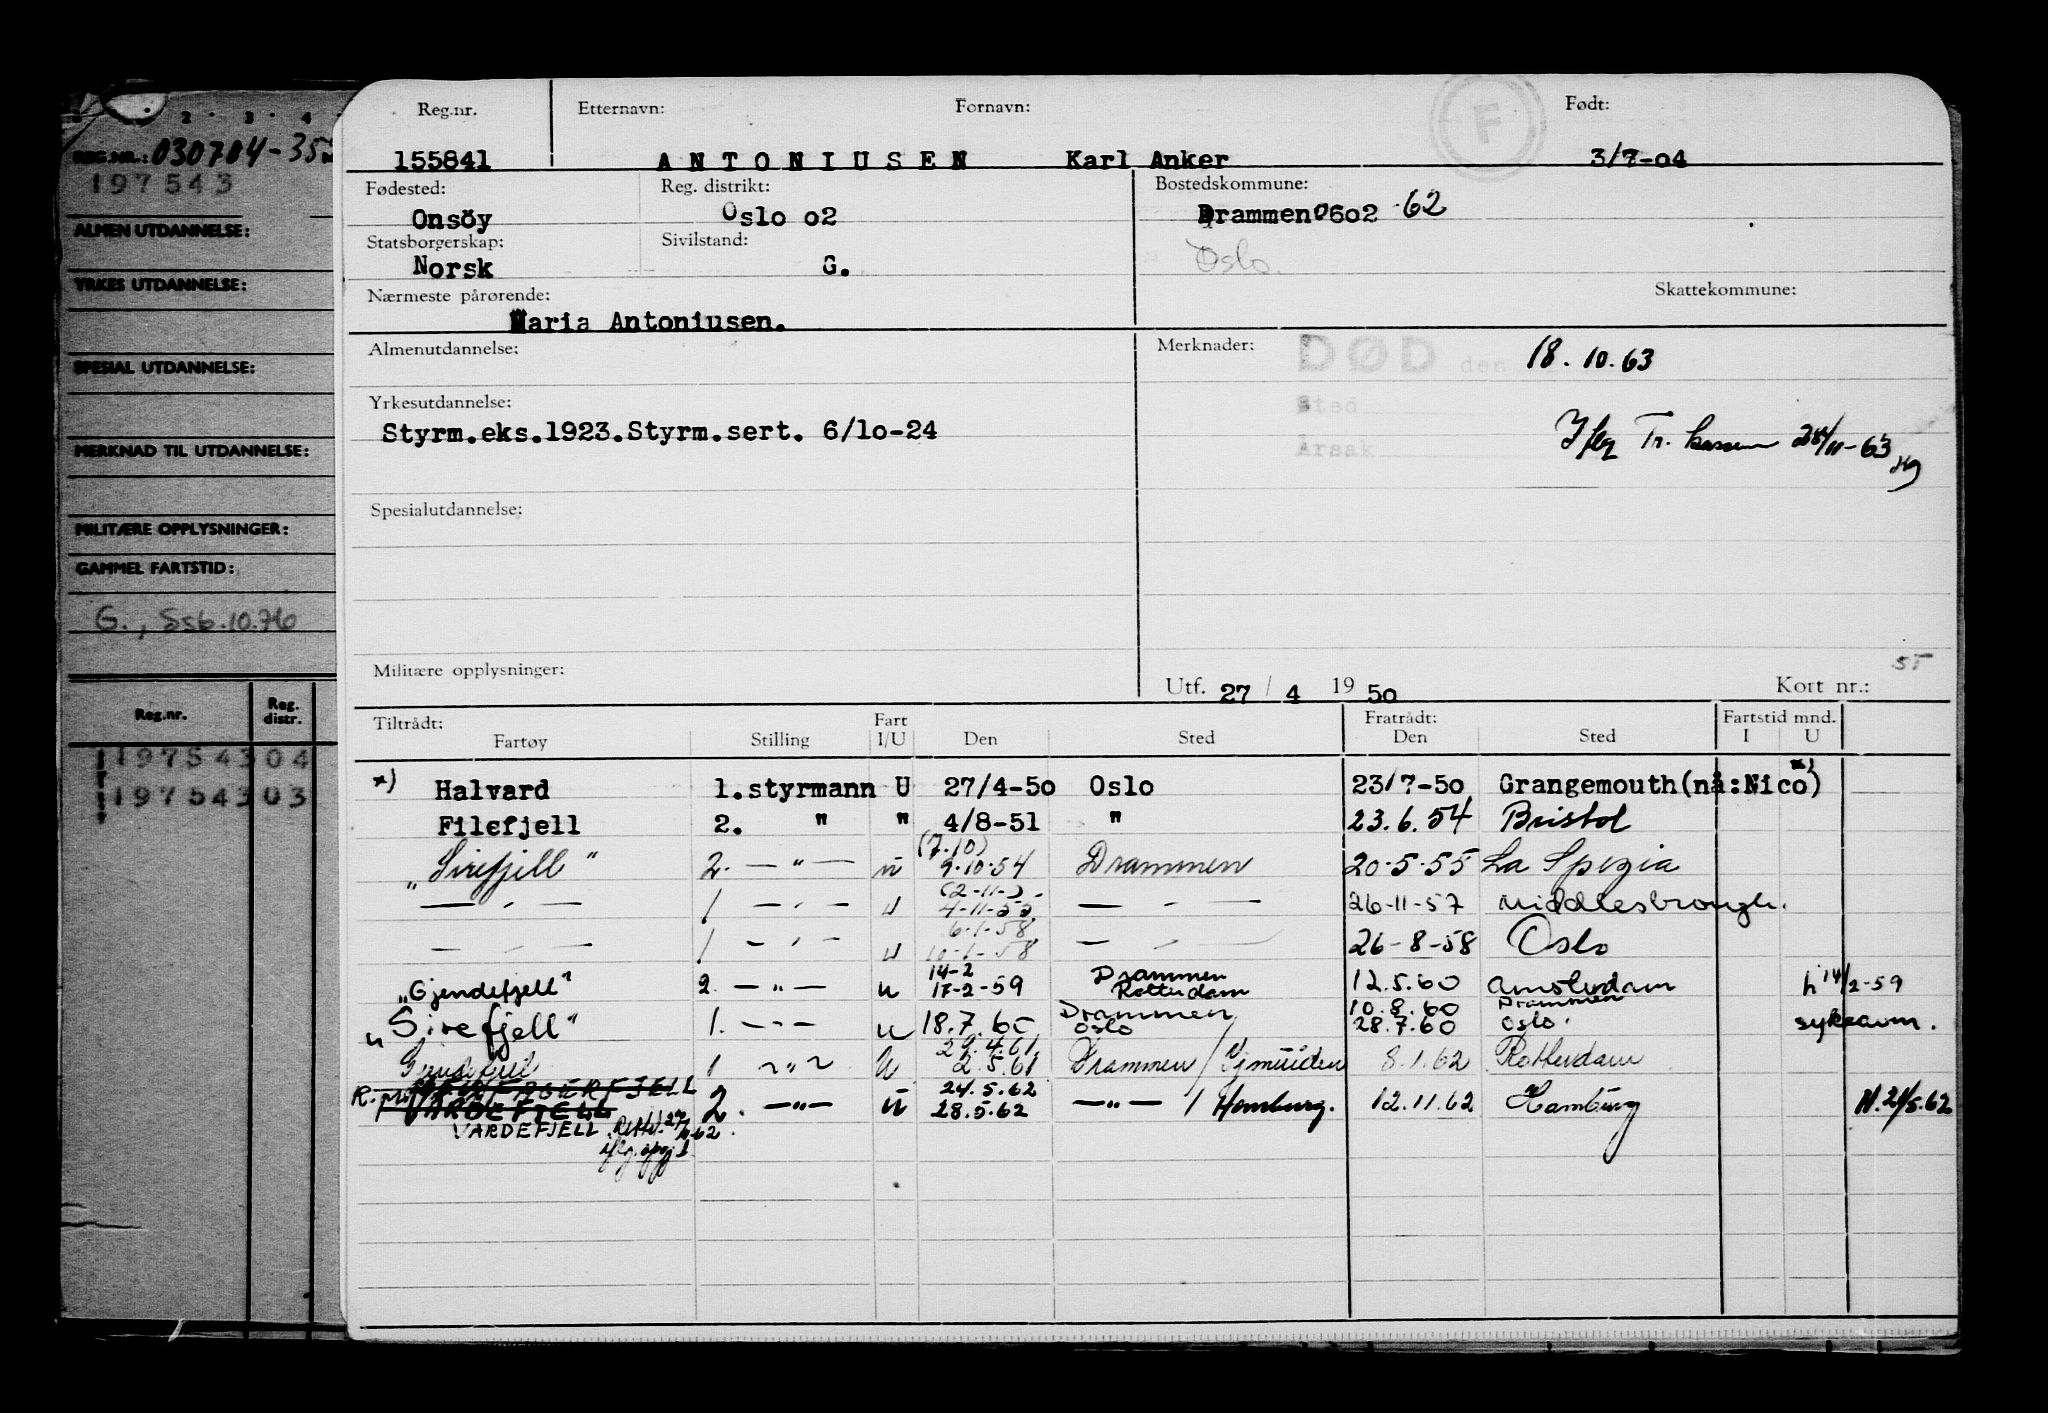 2 · 3 · 4
REG.NR.: 030704-35
197543
ALMEN UTDANNELSE:
YRKES UTDANNELSE:
SPESIAL UTDANNELSE:
MERKNAD TIL UTDANNELSE:
MILITÆRE OPPLYSNINGER:
GAMMEL FARTSTID:
G., Ssb.10.76
Reg.nr. Reg. distr.
197543 04
197543 03
Reg.nr. Etternavn: Fornavn: F Født:
155841 ANTONIUSEN Karl Anker 3/7-04
Fødested: Reg. distrikt: Bostedskommune:
Onsöy Oslo o2 Drammen 0602 62
Statsborgerskap: Sivilstand: Oslo.
Norsk G.
Nærmeste pårørende: Skattekommune:
Maria Antoniusen.
Almenutdannelse: Merknader: DØD den 18.10.63
Yrkesutdannelse: Sted
Styrm.eks.1923.Styrm.sert. 6/10-24
Årsak Iflg Tr. kassen 28/11-63
Spesialutdannelse:
Militære opplysninger: ST
Utf. 27 / 4 19 50 Kort nr.:
Tiltrådt: Fart Fratrådt: Fartstid mnd.
Fartøy Stilling I/U Den Sted Den Sted I U
x) Halvard 1.styrmann U 27/4-50 Oslo 23/7-50 Grangemouth(nå:Nico) x)
Filefjell 2. " " 4/8-51 " 23.6.54 Bristol
(7.10)
"Sirefjell" 2. — " — u 9.10.54 Drammen 20.5.55 La Spezia
(2-11-)
— " — 1 — " — u 4-11-55 — " — 26-11-57 Middlesbrough.
6-1-58
— " — 1 — " — u 10-1-58 — " — 26-8-58 Oslo
14-2 Drammen
"Gjendefjell" 2. — " — u 17-2-59 Rotterdam 12.5.60 Amsterdam h 14/2-59
Drammen 10.8.60 Drammen
"Sirefjell" 1. — " — u 18.7.60 Oslo 28.7.60 Oslo. sykeavm.
29.4.61
1 — " — u 2.5.61 Drammen / Ijmuiden 8.1.62 Rotterdam
24.5.62
VARDEFJELL 2. — " — u 28.5.62 — " — / Hamburg. 12.11.62 Hamburg M.21/5.62
VARDEFJELL Rettet
iflg.